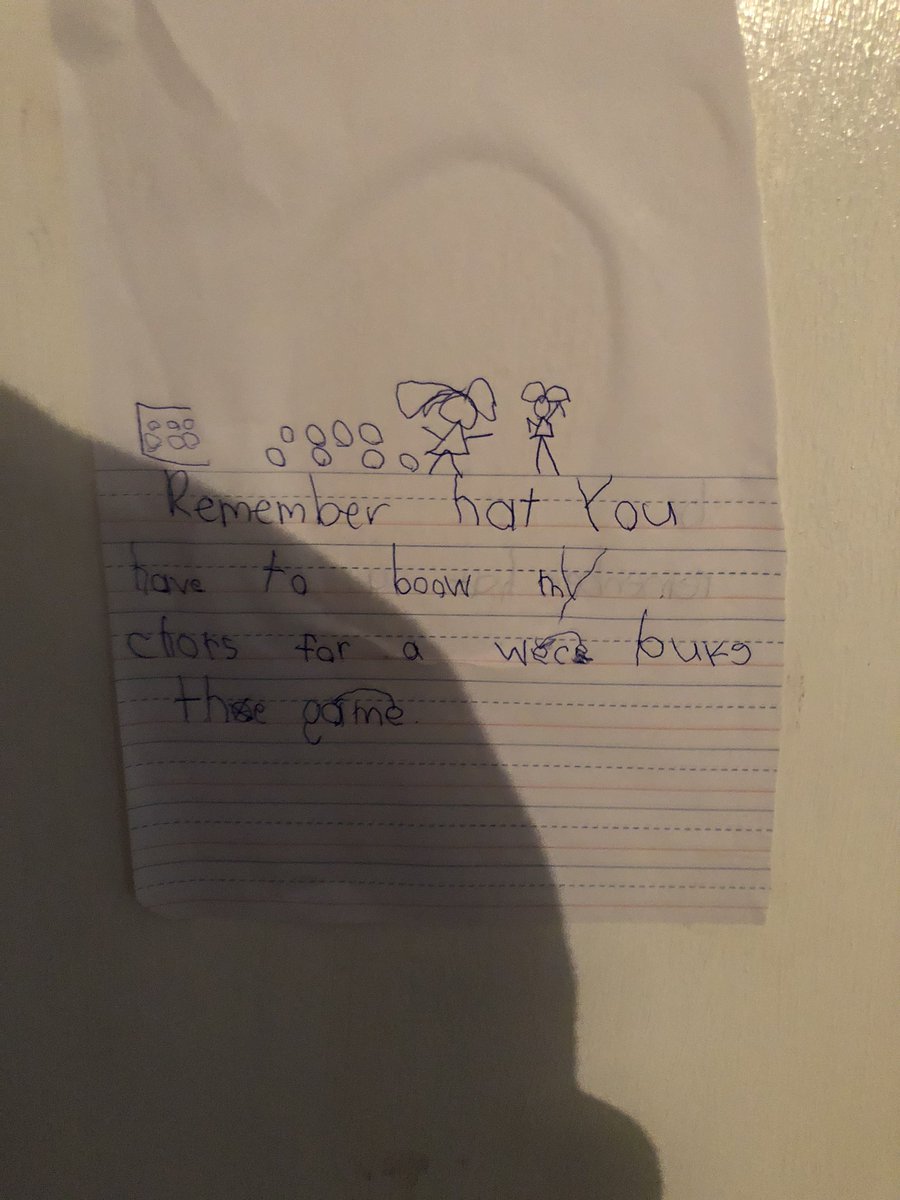 Remember hat You
have to boow my
chors for a wece buks
the game